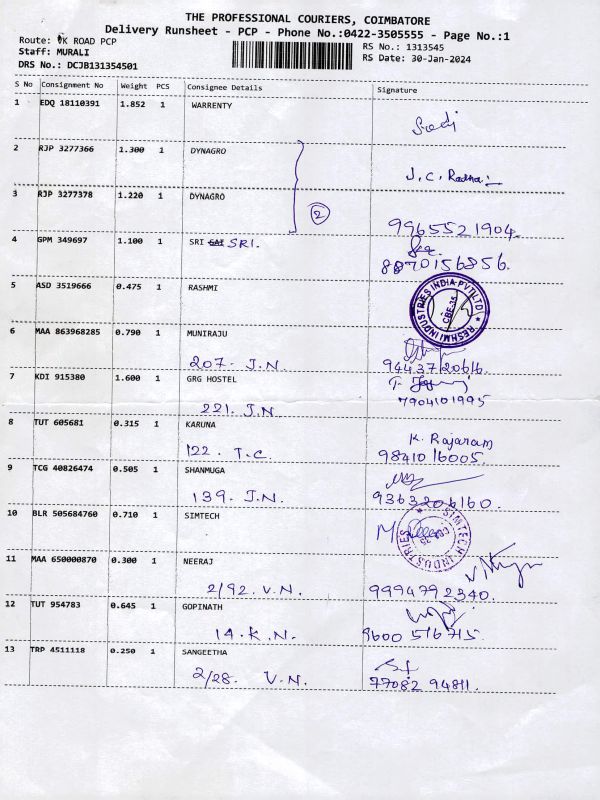 THE PROFESSIONAL COURIERS, COIMBATORE
Delivery Runsheet - PCP - Phone No.:0422-3505555 - Page No.:1
Route: VK ROAD PCP
Staff: MURALI
DRS No.: DCJB131354501
RS No.: 1313545
RS Date: 30-Jan-2024
S No Consignment No Weight PCS Consignee Details Signature
1 EDQ 18110391 1.852 1 WARRENTY
2 RJP 3277366 1.300 1 DYNAGRO
J.C. Radha
3 RJP 3277378 1.220 1 DYNAGRO
2
9965521904.
4 GPM 349697 1.100 1 SRI SAI SRI.
8870156856.
5 ASD 3519666 0.475 1 RASHMI
RESHMI INDUSTRIES INDIA PVT LTD
CBE-35
6 MAA 863968285 0.790 1 MUNIRAJU
207. J.N.
9443720616.
7 KDI 915380 1.600 1 GRG HOSTEL
221. J.N.
7904101995
8 TUT 605681 0.315 1 KARUNA
K. Rajaram
122. T.C.
9841016005.
9 TCG 40826474 0.505 1 SHANMUGA
139. J.N.
9363206160.
10 BLR 505684760 0.710 1 SIMTECH
SIMTECH INDUSTRIES
11 MAA 650000870 0.300 1 NEERAJ
2/92. V.N.
9994792340.
12 TUT 954783 0.645 1 GOPINATH
14. K.N.
9600 516715.
13 TRP 4511118 0.250 1 SANGEETHA
2/28. V.N.
77082 94811.